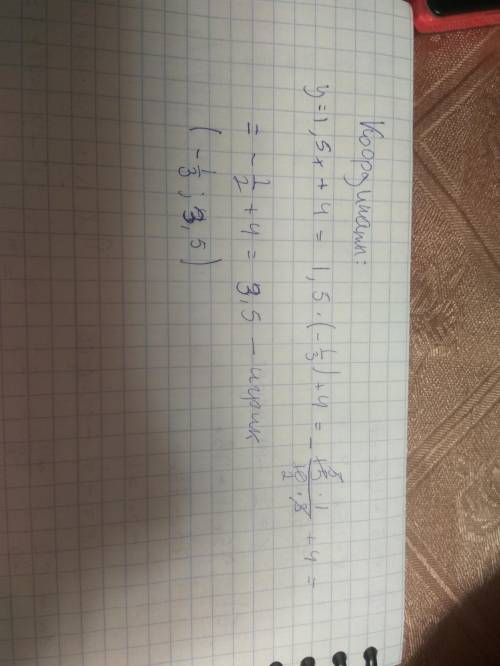 Координаты:
y=1,5x+4 = 1,5·(-1/3)+4 = -15·1/10·3 +4 =
= -1/2+4 = 3,5 – игрик
(-1/3; 3,5)